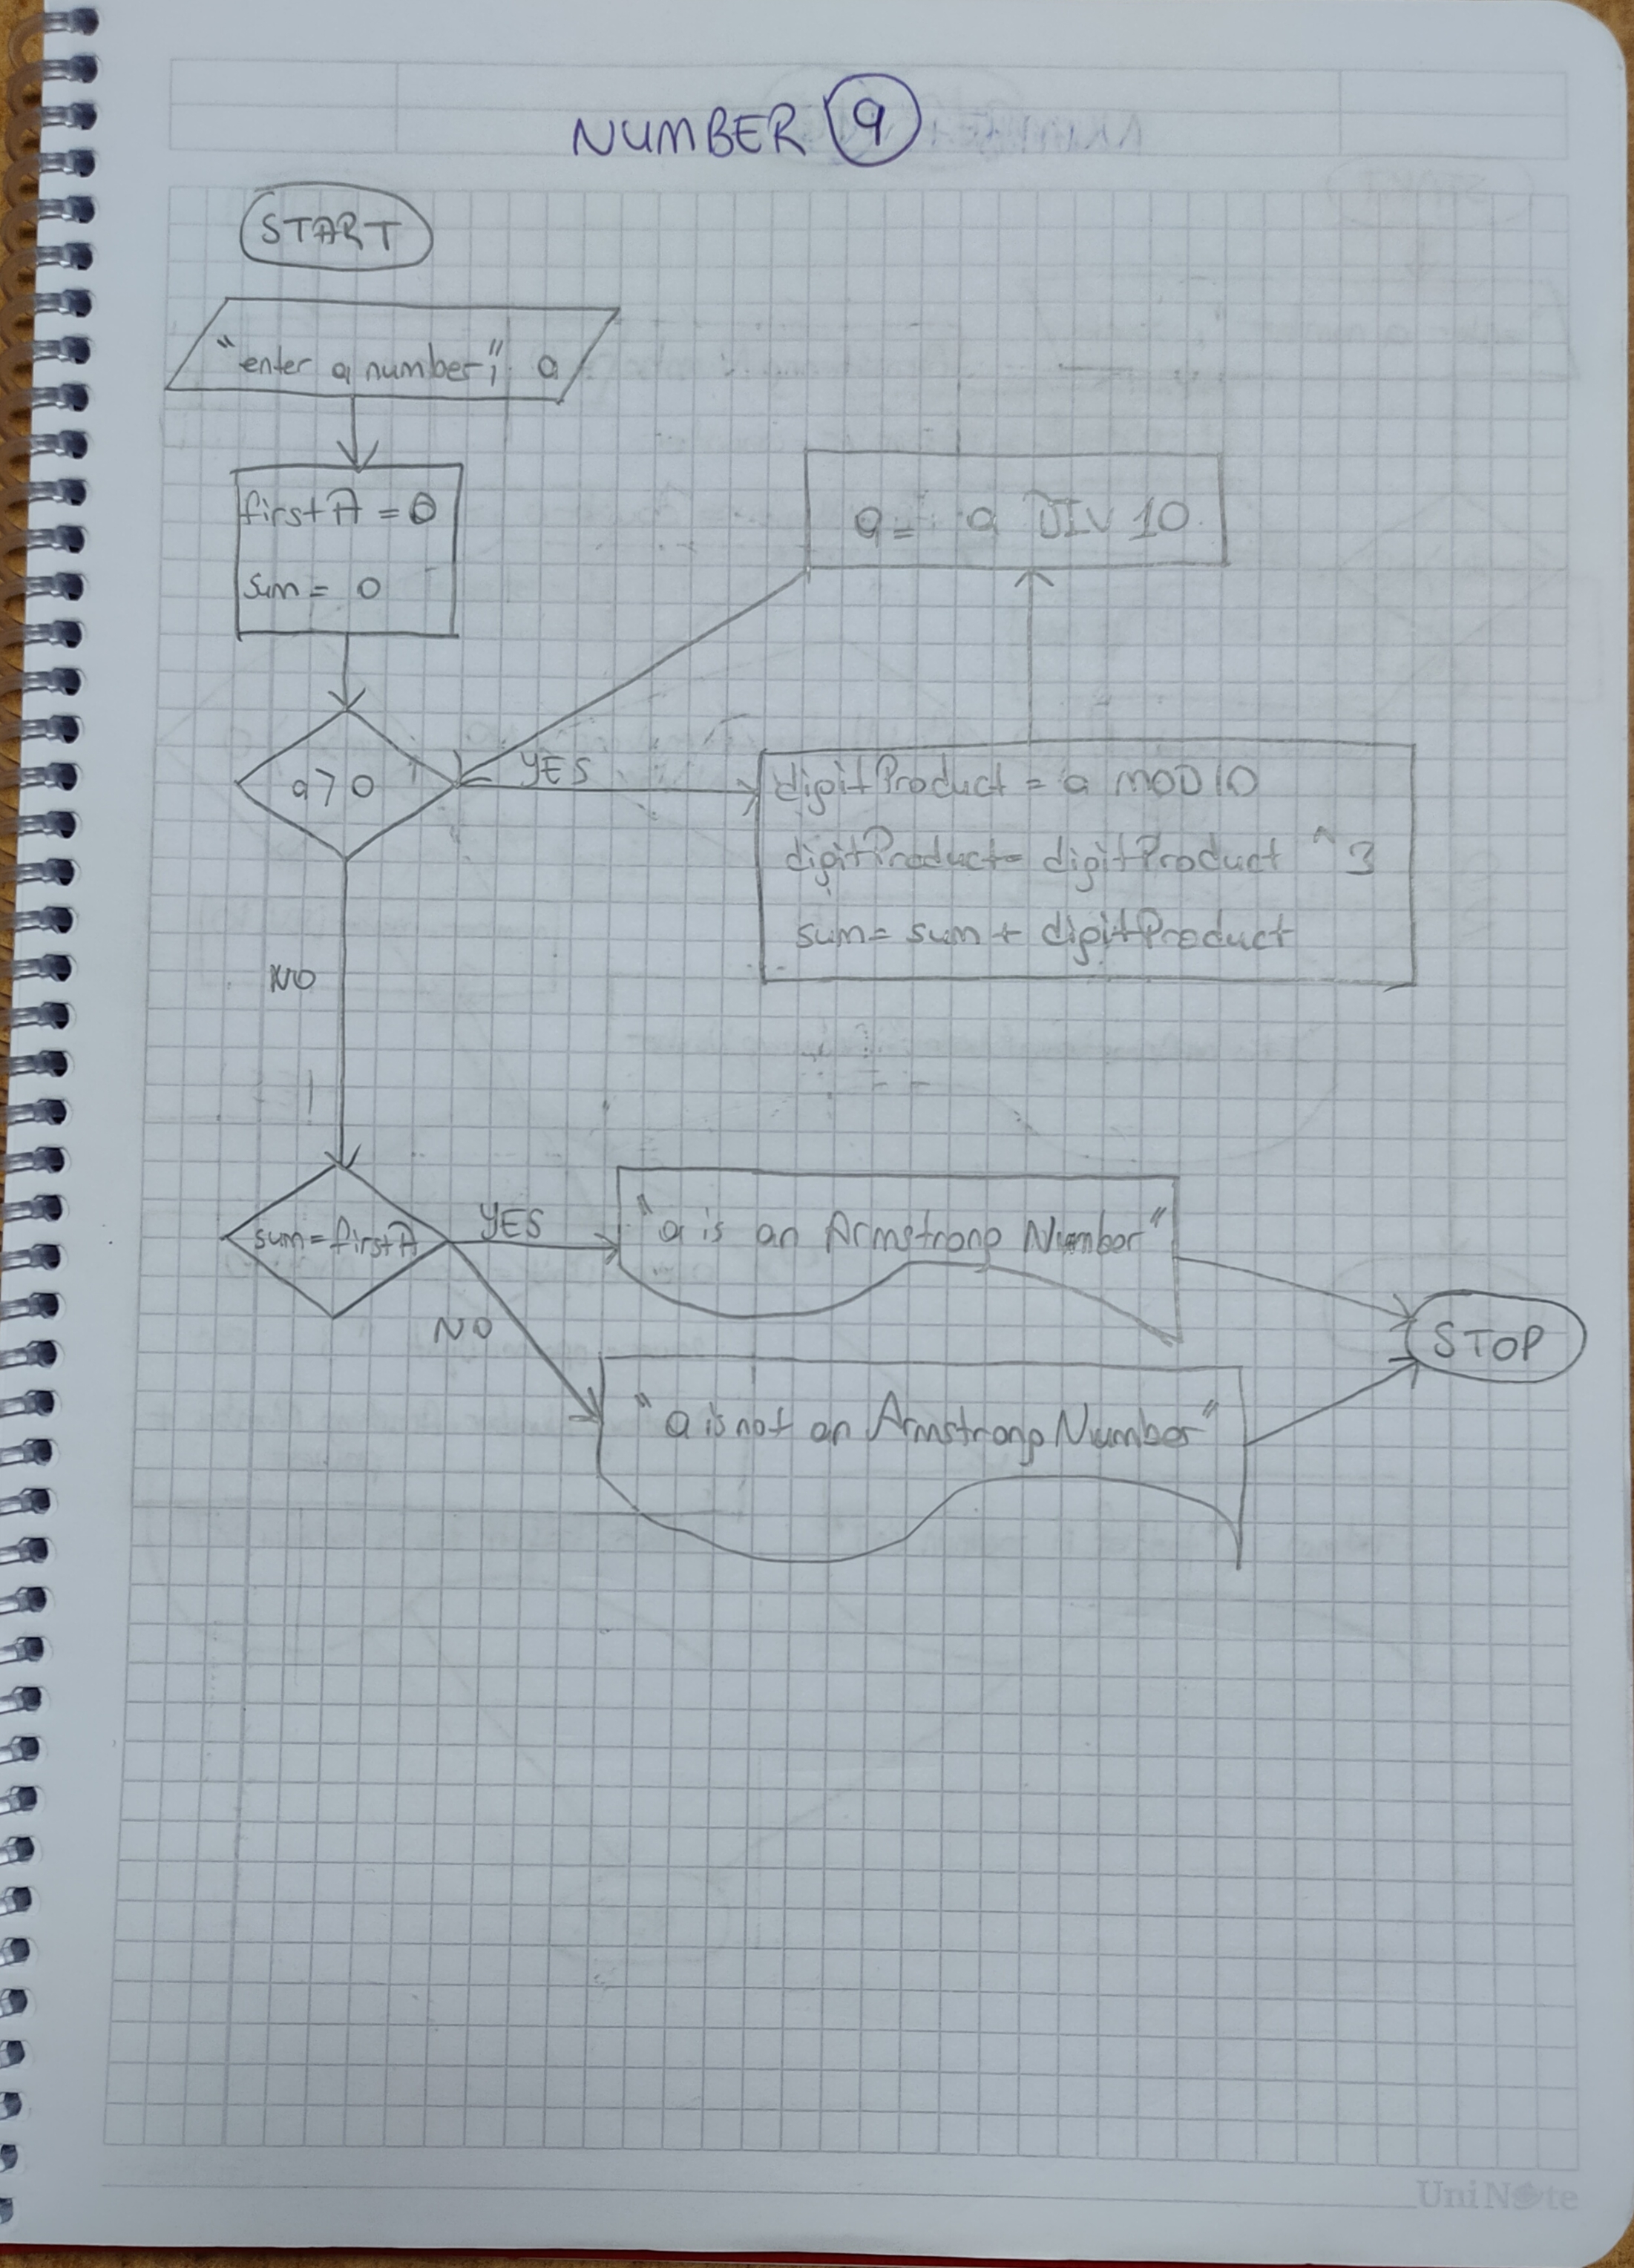 NUMBER 9
START
"enter a number", a
firstA = a
sum = 0
a = a DIV 10
a > 0
YES
digitProduct = a MOD 10
digitProduct = digitProduct ^ 3
sum = sum + digitProduct
NO
sum = firstA
YES
"a is an Armstrong Number"
NO
"a is not an Armstrong Number"
STOP
UniNote